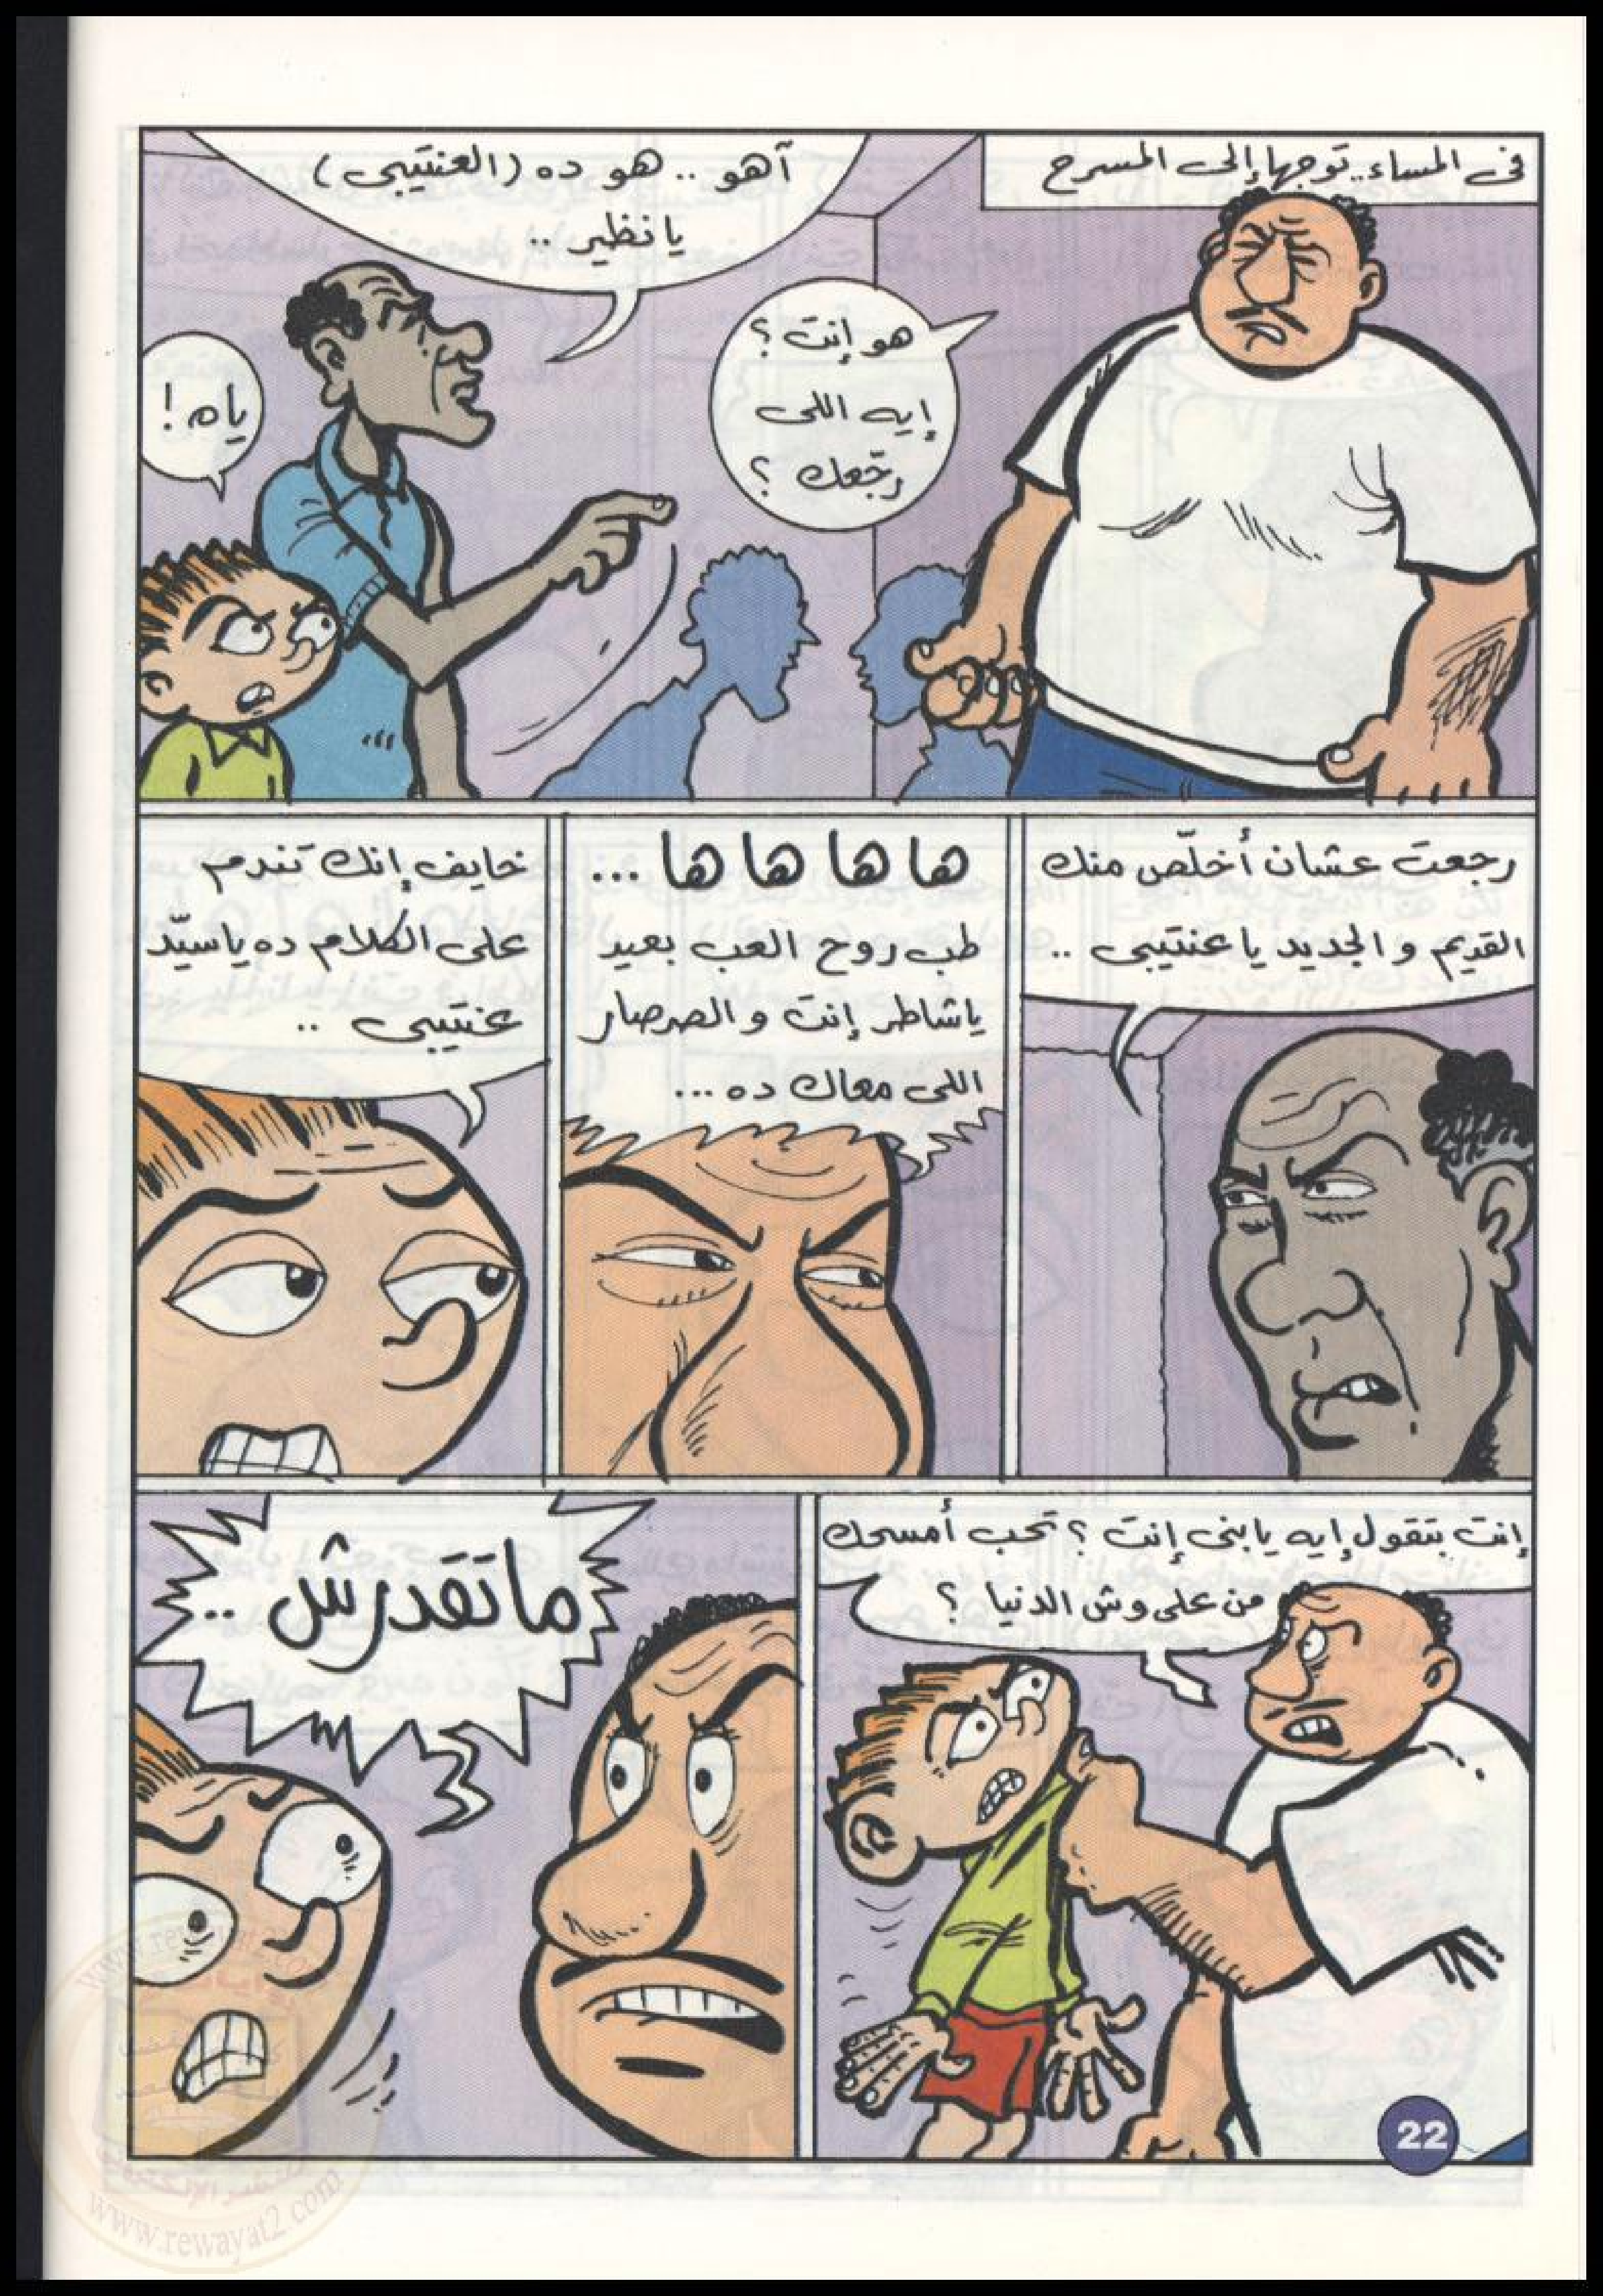 فى المساء.. توجها إلى المسرح
هو إنت ؟
إيه اللى
رجّعك ؟
آهو .. هو ده (العنتيبى)
يا نظير ..
ياه !
رجعت عشان أخلّص منك
القديم و الجديد يا عنتيبى ..
ها ها ها ها ...
طب روح العب بعيد
ياشاطر إنت و الصرصار
اللى معاك ده ...
خايف إنك تندم
على الكلام ده ياسيّد
عنتيبى ..
إنت بتقول إيه يابنى إنت ؟ تحب أمسحك
من على وش الدنيا ؟
ماتقدرش ..
22
www.rewayat2.com